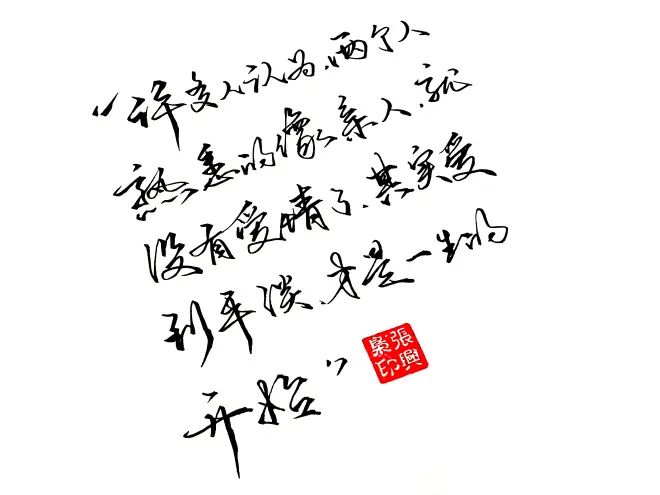 “许多人认为,两个人
熟悉的像亲人,就
没有爱情了,其实爱
到平淡,才是一生的
开始”
張興
梟印